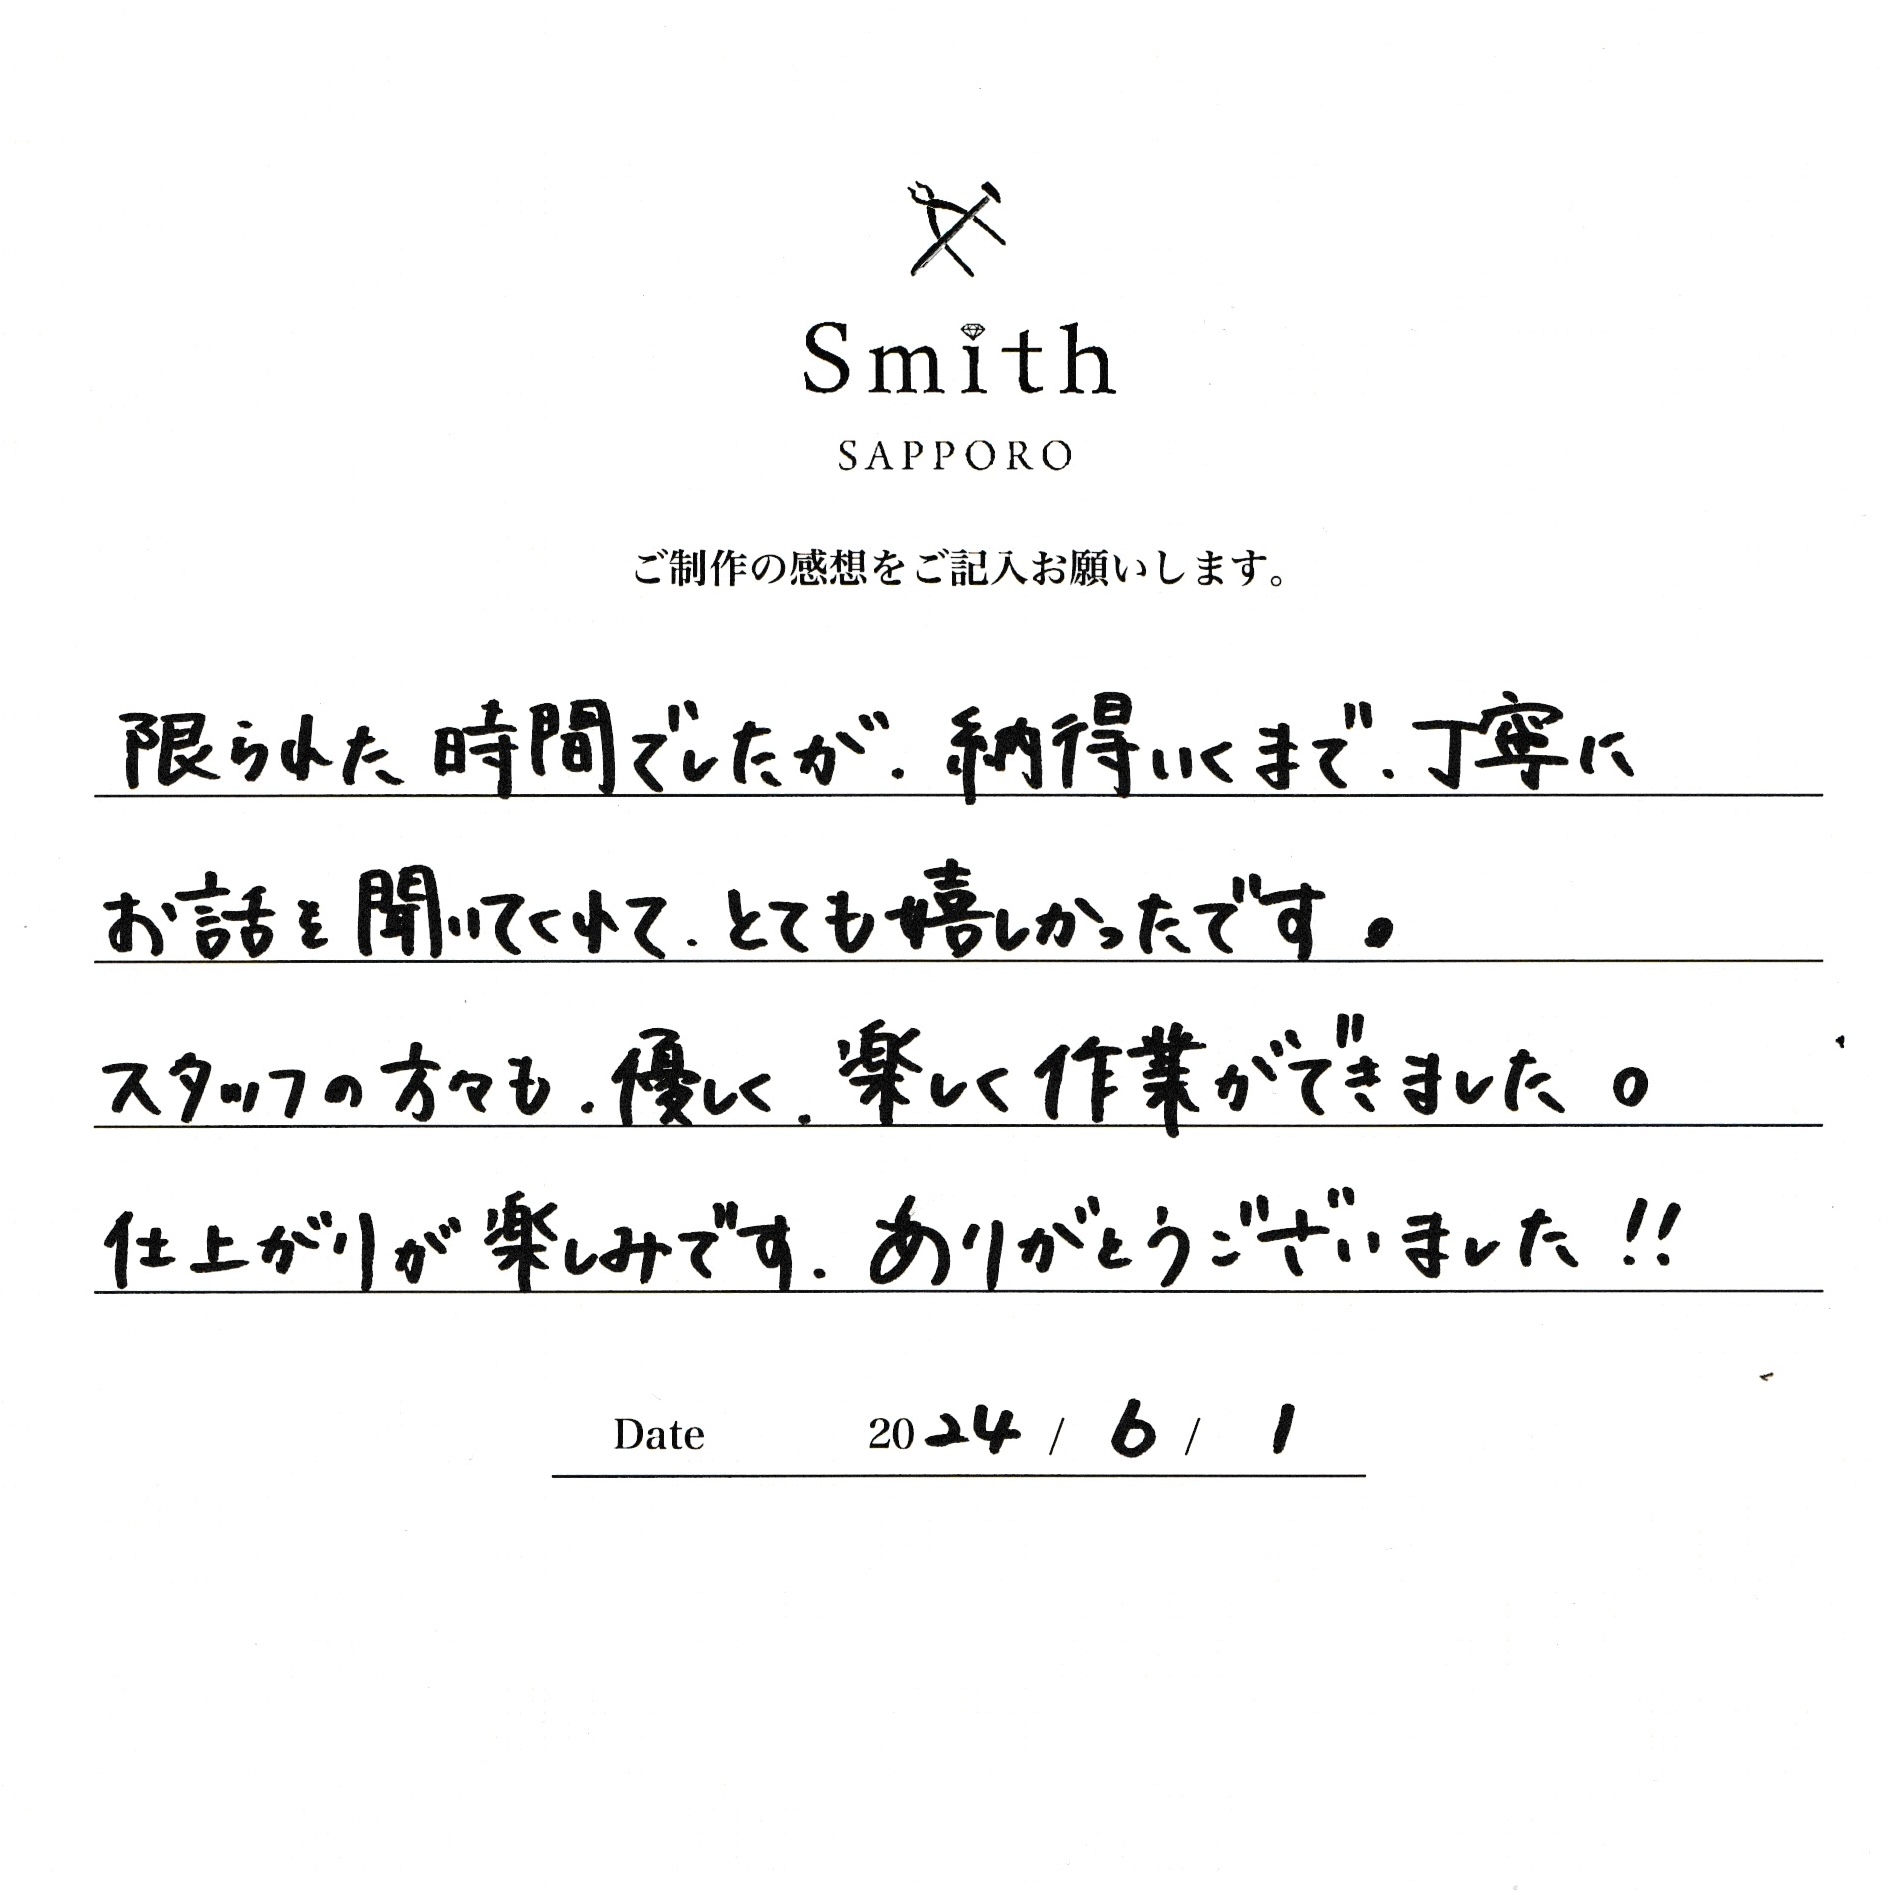 Smith
SAPPORO
ご制作の感想をご記入お願いします。
限られた時間でしたが、納得いくまで、丁寧に
お話を聞いてくれて、とても嬉しかったです。
スタッフの方々も、優しく、楽しく作業ができました。
仕上がりが楽しみです、ありがとうございました!!
Date 2024 / 6 / 1